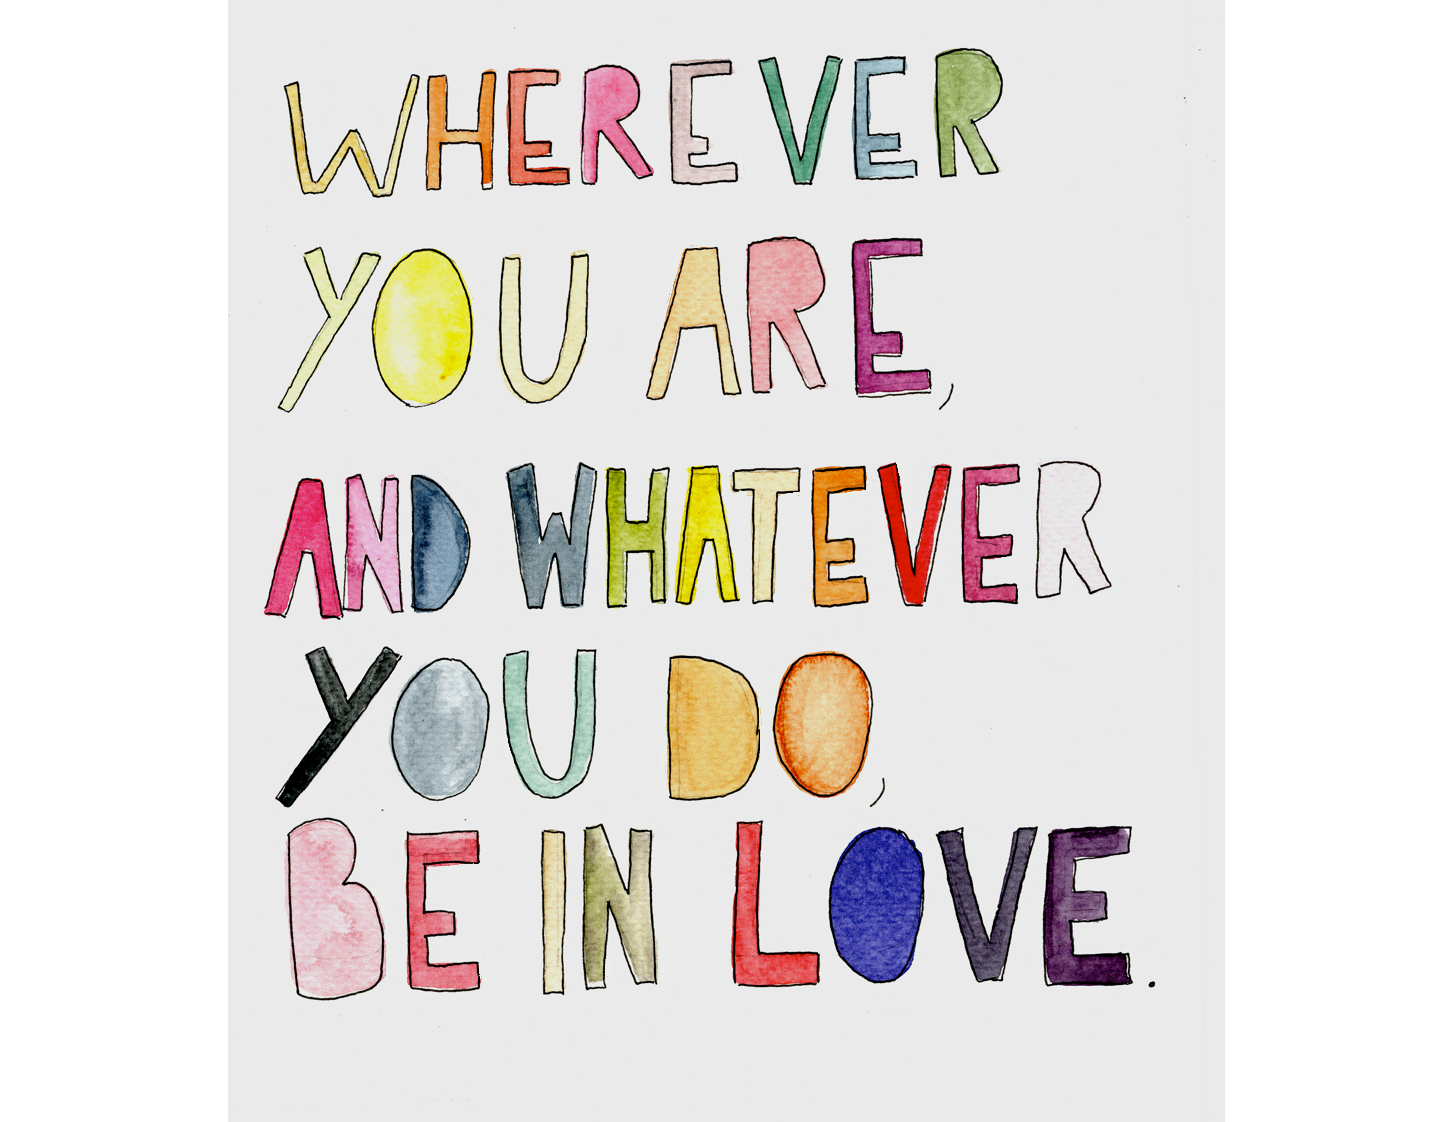 WHEREVER
YOU ARE,
AND WHATEVER
YOU DO,
BE IN LOVE.